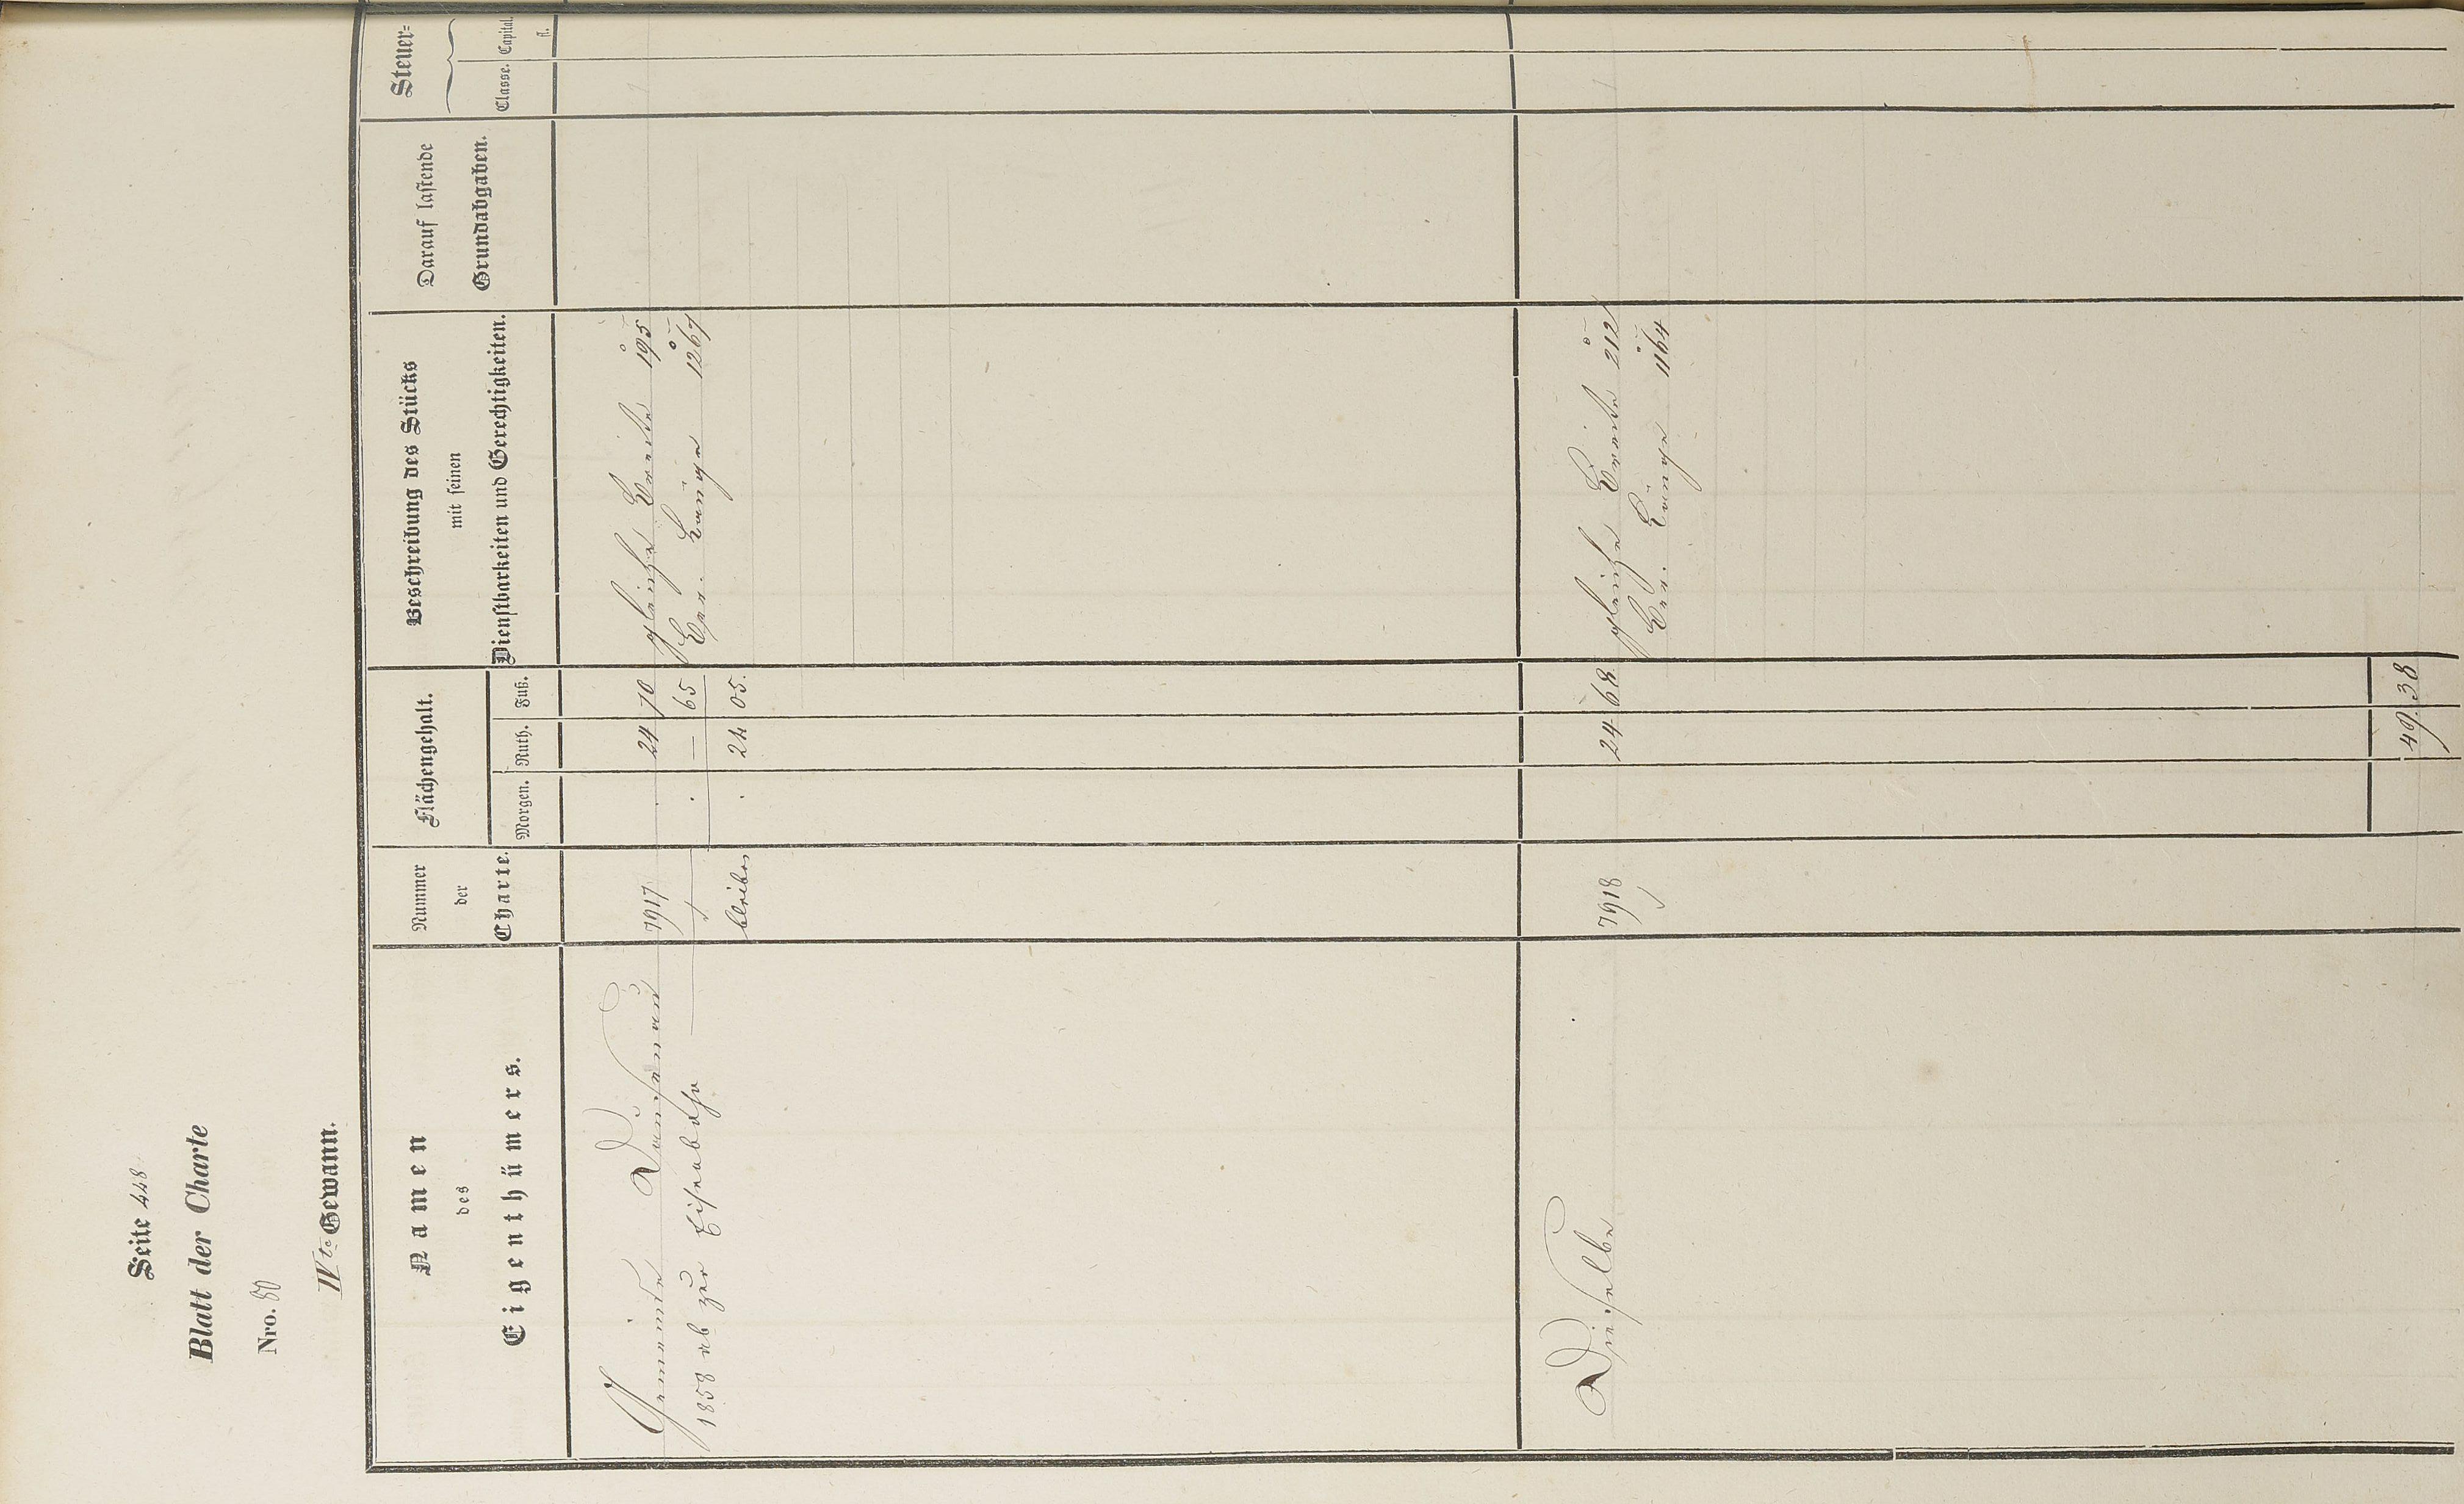 Seite 448
Blatt der Charte
Nro. 80
IVte Gewann.
Namen
des
Eigenthümers.
Nummer
der
Charte.
Flächengehalt.
Morgen. Ruth. Fuß.
Beschreibung des Stücks
mit seinen
Dienstbarkeiten und Gerechtigkeiten.
Darauf lastende
Grundabgaben.
Steuer-
Classe. Capital.
fl.
Gemeinde 7917 . 24 70 gleiche Breite 195
1858 ab zur Eisenbahn . — 65 Ger. Länge 1267
bleiben . 24 05.
Dieselbe 7918 24 68 gleiche Breite 212
Ger. Länge 1164
49. 38